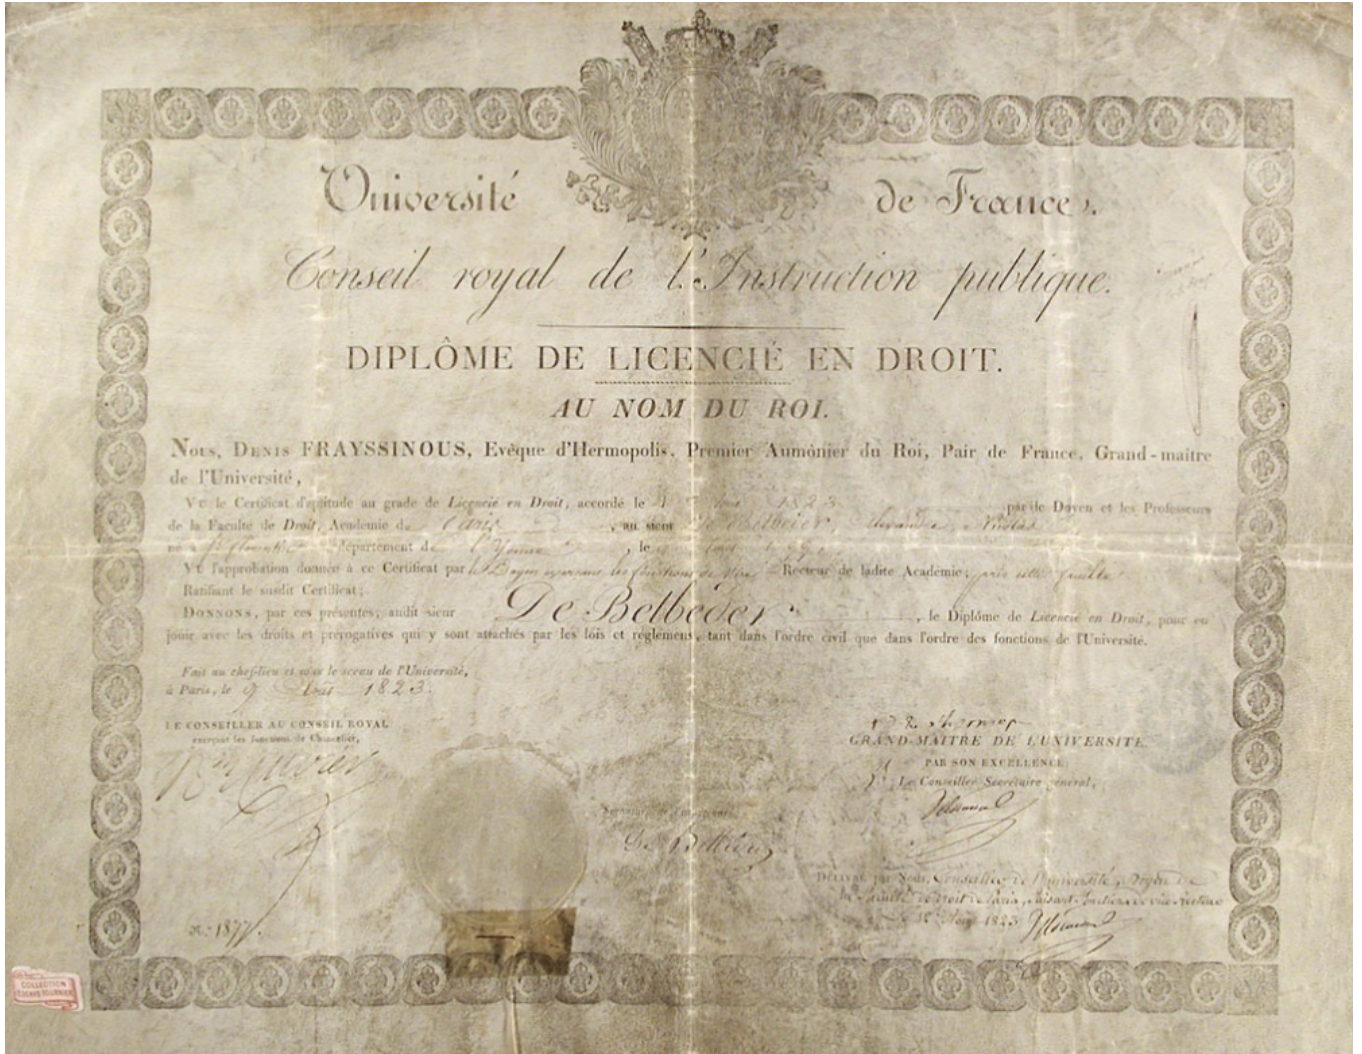 Université de France.
Conseil royal de l'Instruction publique.
DIPLÔME DE LICENCIÉ EN DROIT.
AU NOM DU ROI.
Nous, Denis FRAYSSINOUS, Evêque d'Hermopolis, Premier Aumônier du Roi, Pair de France, Grand-maître
de l'Université,
Vu le Certificat d'aptitude au grade de Licencié en Droit, accordé le 1823 par le Doyen et les Professeurs
de la Faculté de Droit, Académie de Paris, au sieur De Belbeder, Alexandre Nicolas
né à département de l'Yonne, le
Vu l'approbation donnée à ce Certificat par le Doyen exerçant les fonctions de Recteur de ladite Académie;
Ratifiant le susdit Certificat;
Donnons, par ces présentes, audit sieur De Belbeder, le Diplôme de Licencié en Droit, pour en
jouir avec les droits et prérogatives qui y sont attachés par les lois et réglemens, tant dans l'ordre civil que dans l'ordre des fonctions de l'Université.
Fait au chef-lieu et sous le sceau de l'Université,
à Paris, le 9 Août 1823.
LE CONSEILLER AU CONSEIL ROYAL
exerçant les fonctions de Chancelier,
GRAND-MAÎTRE DE L'UNIVERSITÉ
PAR SON EXCELLENCE
Le Conseiller Secrétaire général,
Signature de l'impétrant
De Belbeder
Délivré par Nous, Conseiller de l'Université, Doyen de
la Faculté de Droit de Paris, faisant fonctions de Vice-Recteur
Le Août 1823
N.º 1877.
COLLECTION